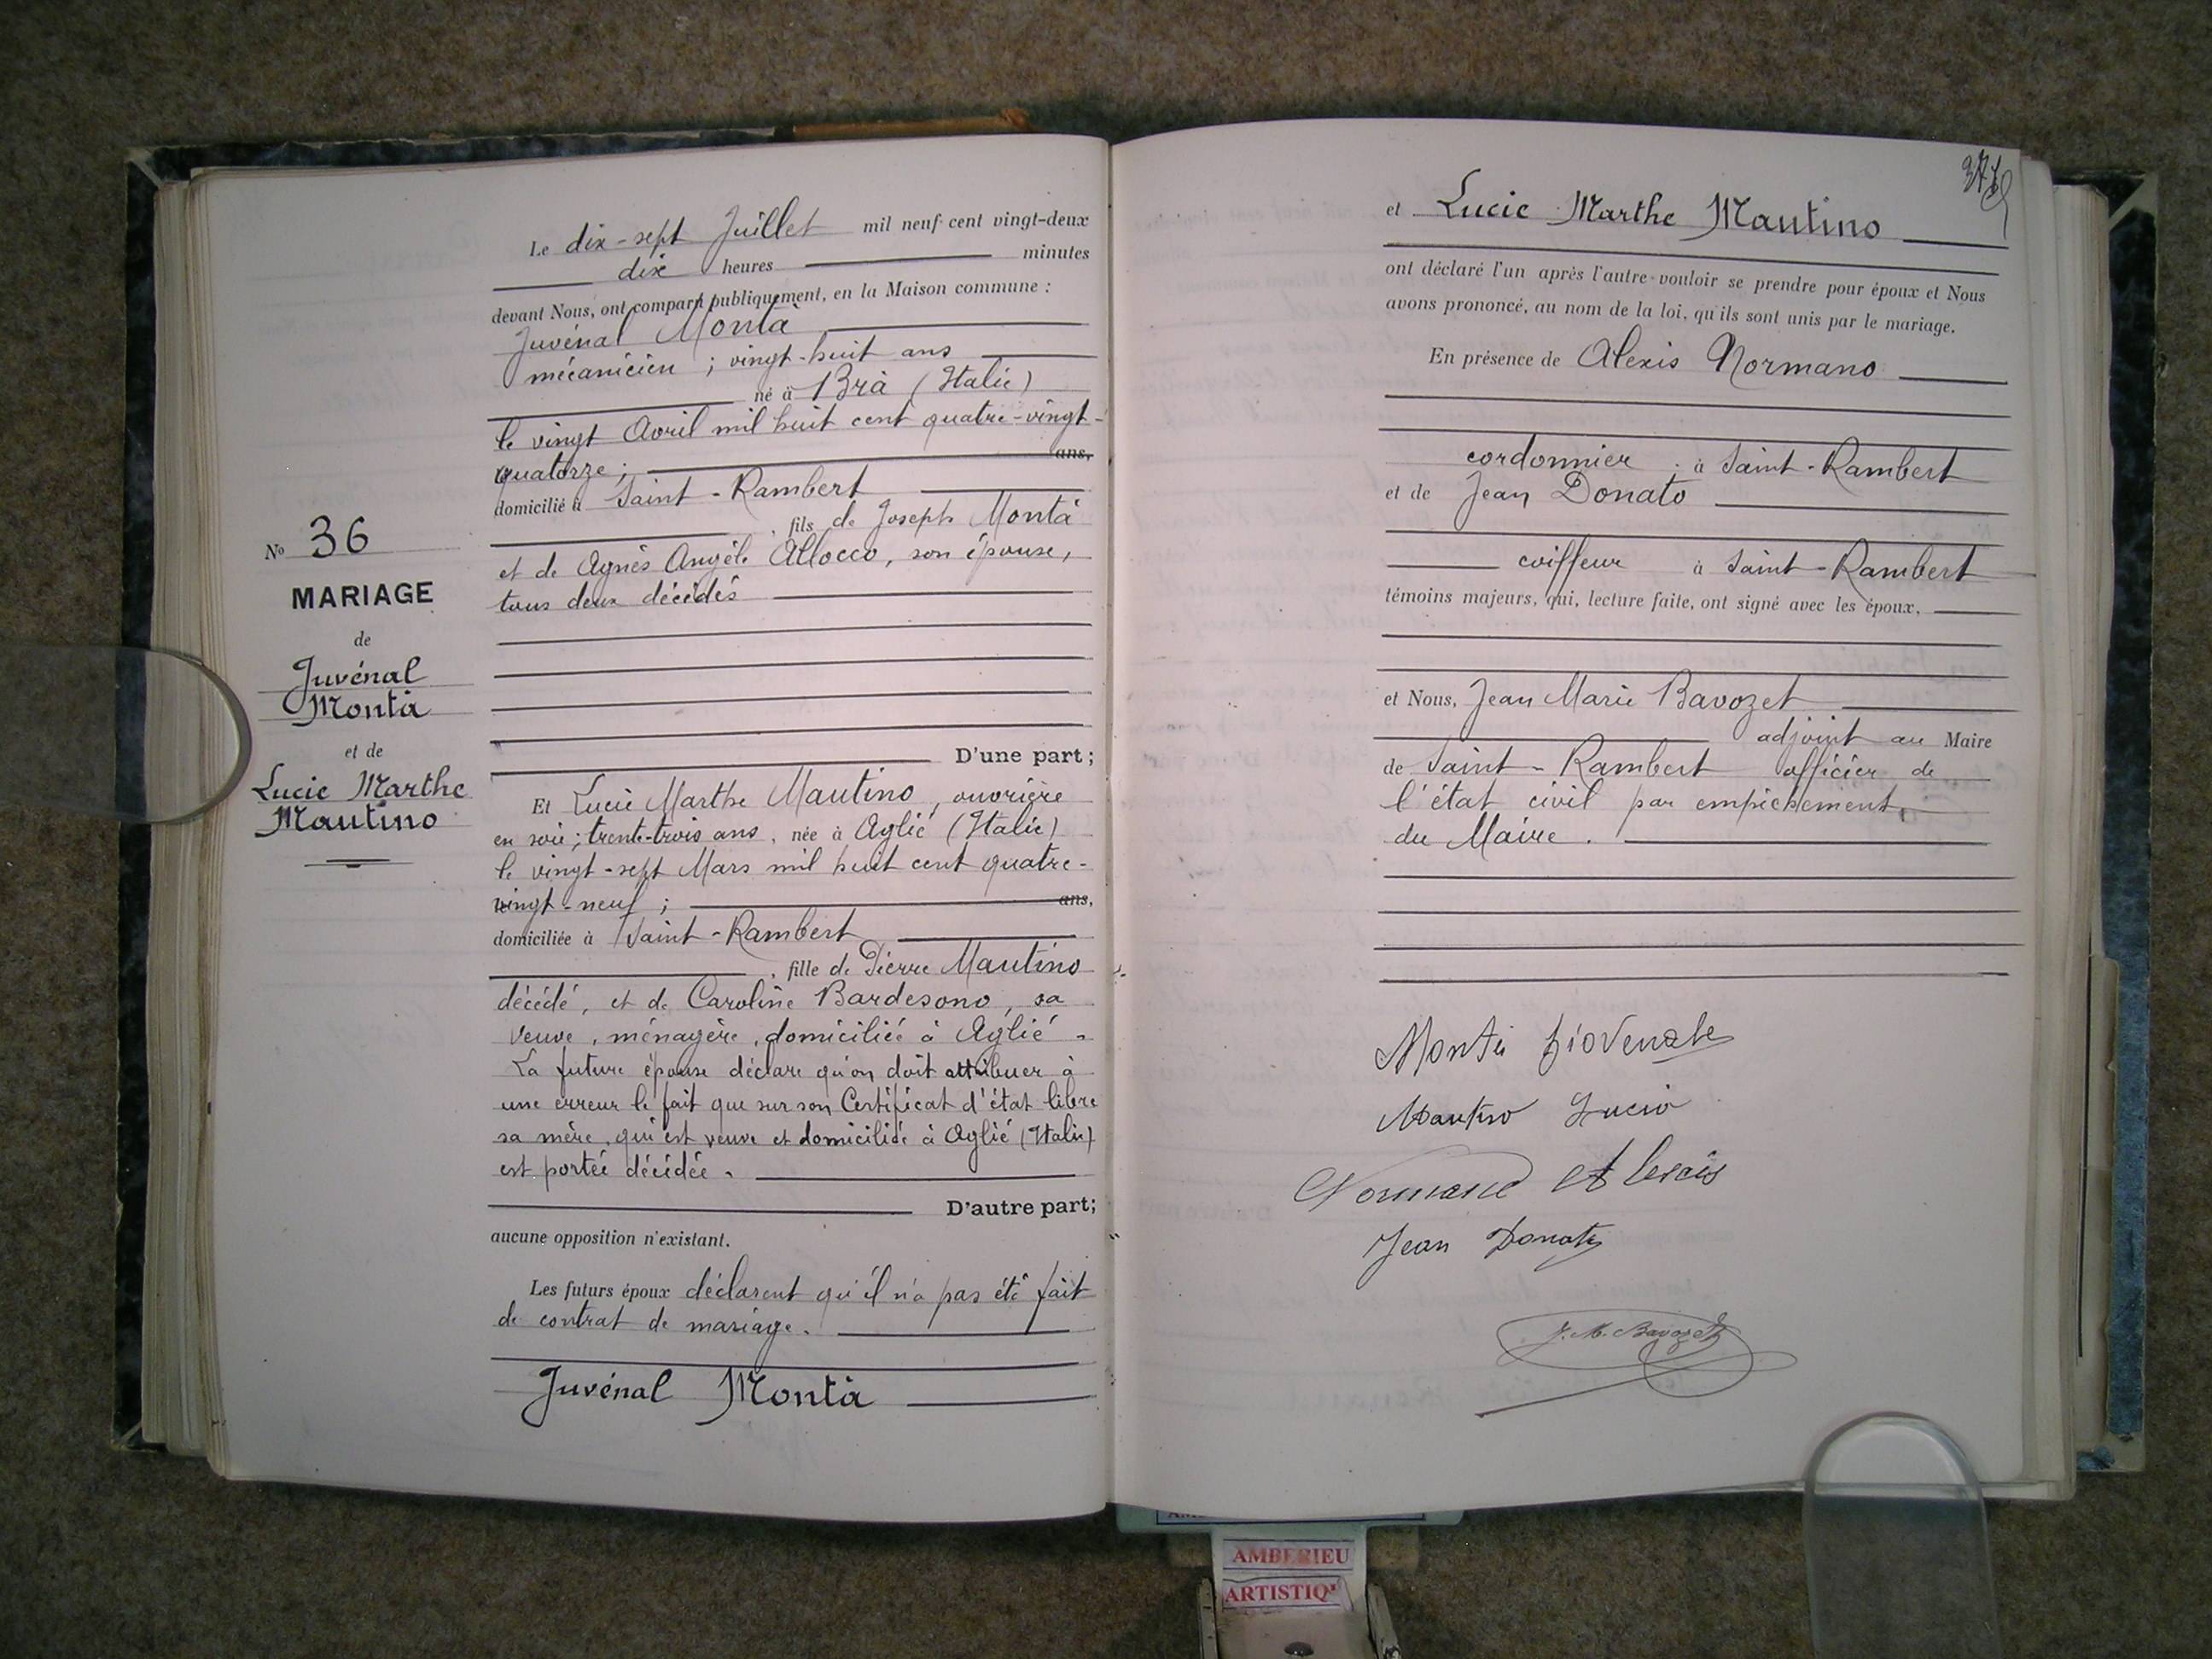 Le dix-sept Juillet mil neuf cent vingt-deux
dix heures minutes
devant Nous, ont comparu publiquement, en la Maison commune :
Juvénal Montà
mécanicien ; vingt-huit ans
né à Brà (Italie)
le vingt Avril mil huit cent quatre-vingt-
quatorze ; ans,
domicilié à Saint-Rambert
, fils de Joseph Montà
et de Agnès Angèle Allocco, son épouse,
tous deux décédés
D'une part ;
Et Lucie Marthe Mautino, ouvrière
en soie ; trente-trois ans, née à Aglié (Italie)
le vingt-sept Mars mil huit cent quatre-
vingt-neuf ; ans,
domiciliée à Saint-Rambert
, fille de Pierre Mautino
décédé, et de Caroline Bardesono, sa
veuve, ménagère, domiciliée à Aglié.
La future épouse déclare qu'on doit attribuer à
une erreur le fait que sur son Certificat d'état libre
sa mère, qui est veuve et domiciliée à Aglié (Italie)
est portée décédée.
D'autre part;
aucune opposition n'existant.
Les futurs époux déclarent qu'il n'a pas été fait
de contrat de mariage.
Juvénal Montà
No 36
MARIAGE
de
Juvénal
Montà
et de
Lucie Marthe
Mautino
et Lucie Marthe Mautino
ont déclaré l'un après l'autre vouloir se prendre pour époux et Nous
avons prononcé, au nom de la loi, qu'ils sont unis par le mariage.
En présence de Alexis Normano
cordonnier à Saint-Rambert
et de Jean Donato
coiffeur à Saint-Rambert
témoins majeurs, qui, lecture faite, ont signé avec les époux,
et Nous, Jean Marie Bavozet
adjoint au Maire
de Saint-Rambert officier de
l'état civil par empêchement
du Maire.
Montà Giovenale
Mautino Lucia
Normano Alexis
Jean Donato
J. M. Bavozet
AMBERIEU
ARTISTIQ